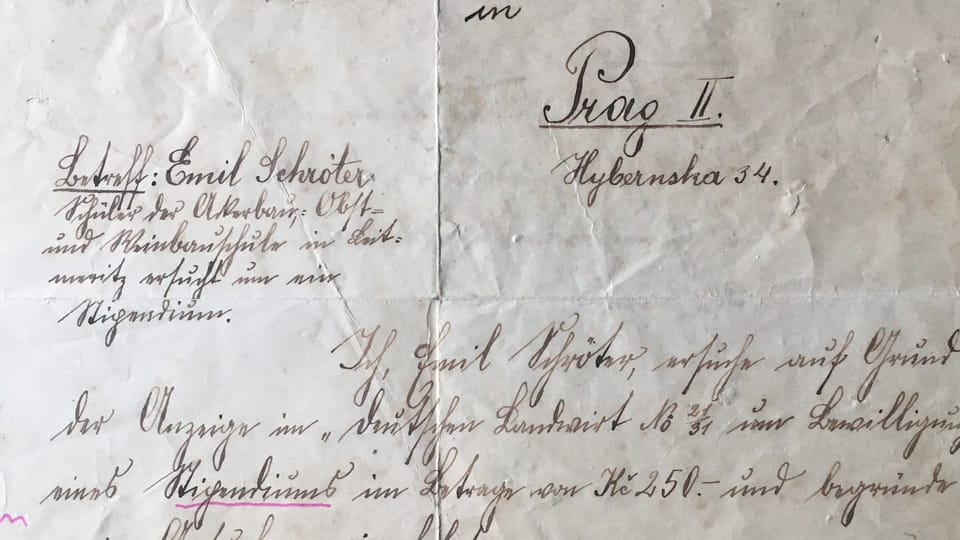 in
Prag II.
Hybernska 34.
Betreff: Emil Schröter
Schüler der Ackerbau-, Obst-
und Weinbauschule in Leit-
meritz ersucht um ein
Stipendium.
Ich, Emil Schröter, ersuche auf Grund
der Anzeige im „Deutschen Landwirt No 21/31 um Bewilligung
eines Stipendiums im Betrage von Kč 250.- und begründe